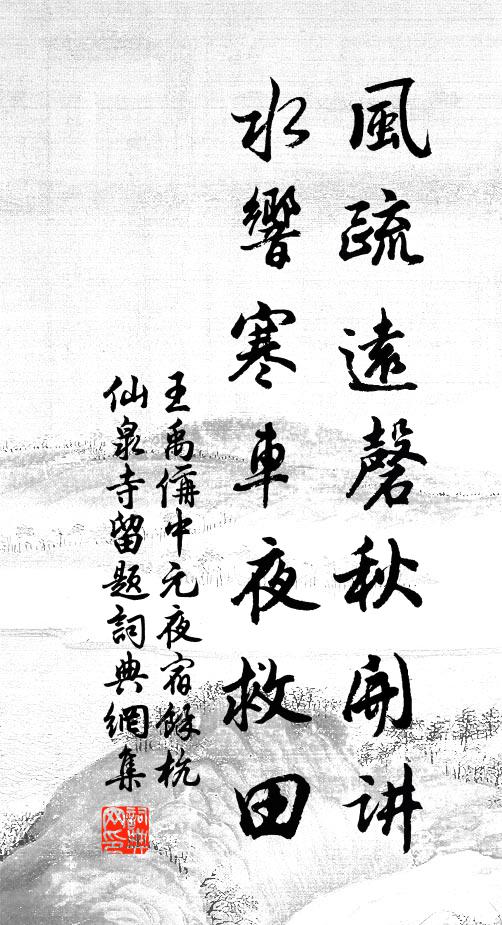 風疏遠磬秋開講
水響寒車夜救田
王禹偁中元夜宿餘杭
仙泉寺留題詞典網集